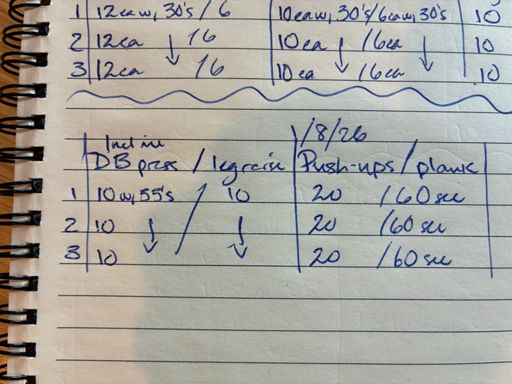 1 12ea w, 30's / 6 10ea w, 30's / 6ea w, 30's 10
2 12ea ↓ 16 10ea ↓ /6ea ↓ 10
3 12ea 16 10ea /6ea 10
1/8/26
Incline
DB press / leg raise Push-ups / plank
1 10 w, 55's / 10 20 /60 sec
2 10 ↓ ↓ 20 /60 sec
3 10 20 /60 sec